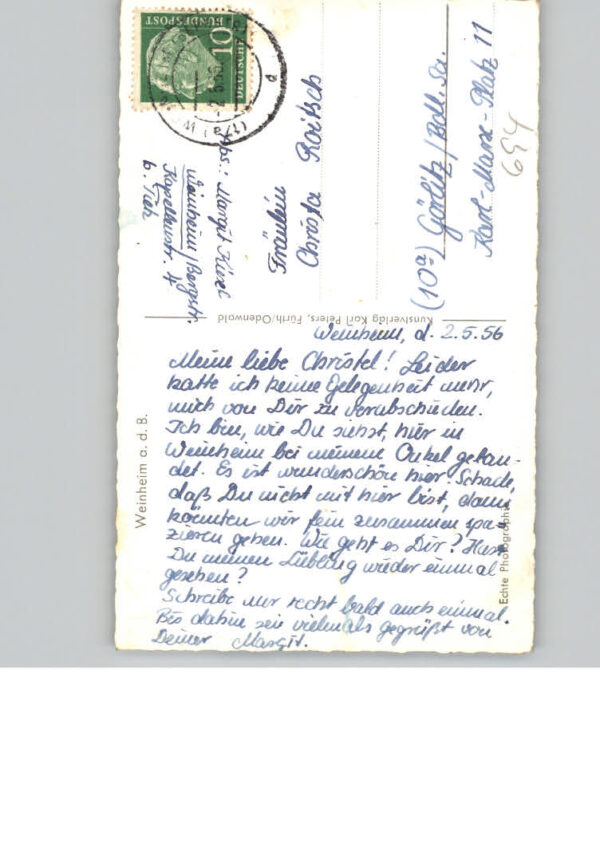 Weinheim, d. 2.5.56
Meine liebe Christel! Leider
hatte ich keine Gelegenheit mehr,
mich von Dir zu verabschieden.
Ich bin, wie Du siehst, hier in
Weinheim bei meinem Onkel gelan-
det. Es ist wunderschön hier. Schade,
daß Du nicht mit hier bist, dann
könnten wir fein zusammen spa-
zieren gehen. Wie geht es Dir? Hast
Du meinen Liebling wieder einmal
gesehen?
Schreibe mir recht bald auch einmal.
Bis dahin sei vielmals gegrüßt von
Deiner Margit.
Weinheim a. d. B.
Echte Photographie
Kunstverlag Karl Peters, Fürth/Odenwald
Abs.: Margit
Weinheim/Bergstr.
Kapellenstr. 4
b.
Fräulein
Christa Roitsch
(10a) Görlitz
Karl-Marx-Platz 11
694
DEUTSCHE
BUNDESPOST
10
(17a) W